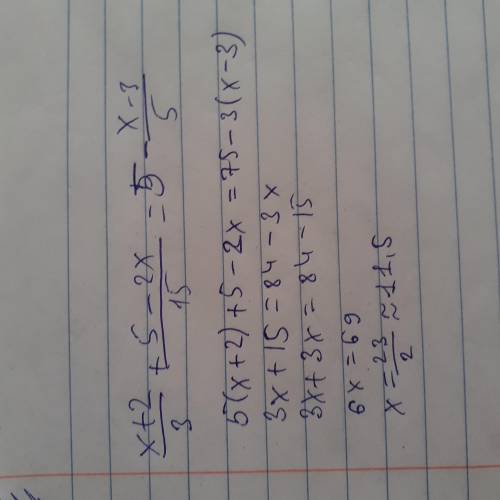 x+2/3 + 5-2x/15 = 5 - x-3/5
5(x+2)+5-2x=75-3(x-3)
3x+15=84-3x
3x+3x=84-15
6x=69
x=23/2≈11,5